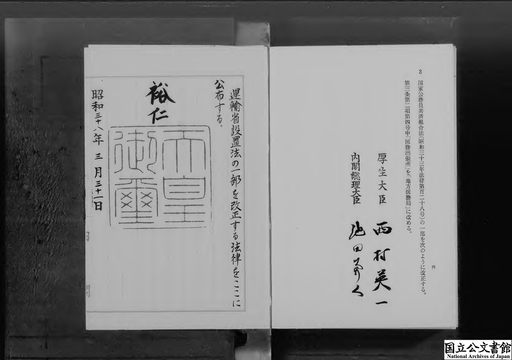 8
国家公務員共済組合法(昭和三十三年法律第百二十八号)の一部を次のように改正する。
厚生大臣 西村英一
内閣総理大臣 池田勇人
運輸省設置法の一部を改正する法律をここに
公布する。
裕仁
天皇
御璽
昭和三十八年三月三十一日
国立公文書館
National Archives of Japan